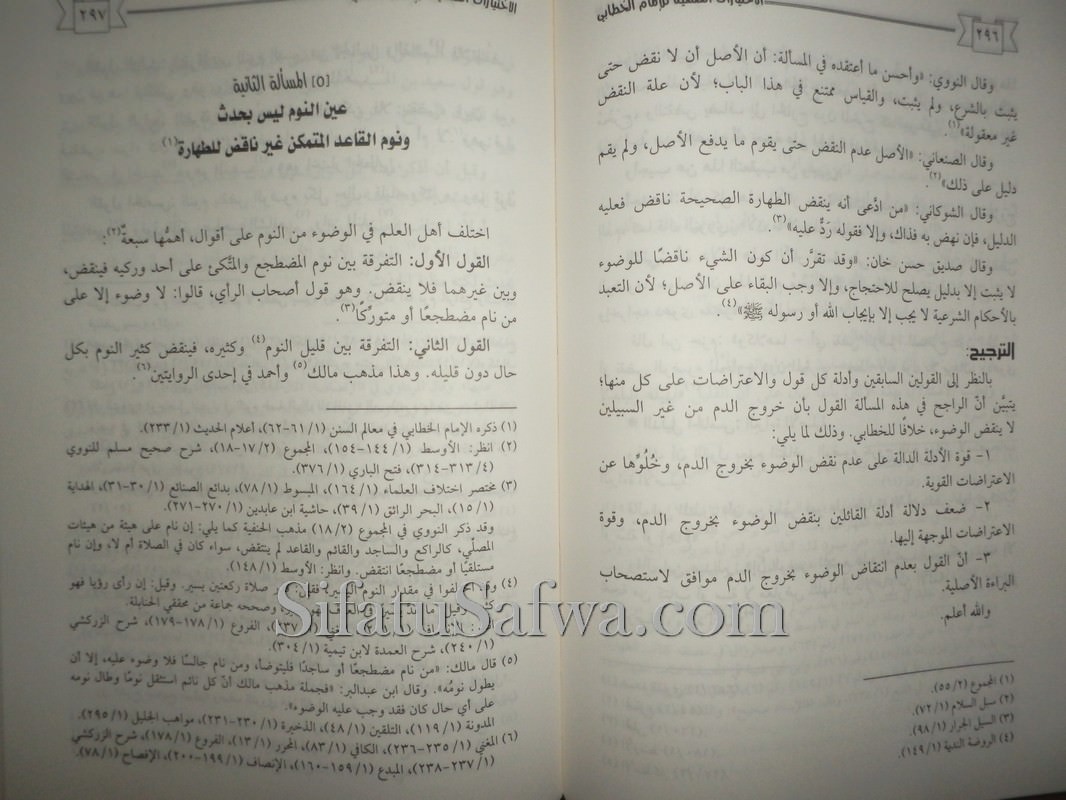 ٢٩٦
للإمام الخطابي
وقال النووي: «وأحسن ما أعتقده في المسألة: أن الأصل أن لا نقض حتى
يثبت بالشرع، ولم يثبت، والقياس ممتنع في هذا الباب؛ لأن علة النقض
غير معقولة»(١).
وقال الصنعاني: «الأصل عدم النقض حتى يقوم ما يدفع الأصل، ولم يقم
دليل على ذلك»(٢).
وقال الشوكاني: «من ادَّعى أنه ينقض الطهارة الصحيحة ناقض فعليه
الدليل، فإن نهض به فذاك، وإلا فقوله رَدٌّ عليه»(٣).
وقال صديق حسن خان: «وقد تقرَّر أن كون الشيء ناقضًا للوضوء
لا يثبت إلا بدليل يصلح للاحتجاج، وإلا وجب البقاء على الأصل؛ لأن التعبد
بالأحكام الشرعية لا يجب إلا بإيجاب الله أو رسوله ﷺ»(٤).
الترجيح:
بالنظر إلى القولين السابقين وأدلة كل قول والاعتراضات على كل منها؛
يتبيَّن أنّ الراجح في هذه المسألة القول بأن خروج الدم من غير السبيلين
لا ينقض الوضوء، خلافًا للخطابي. وذلك لما يلي:
١- قوة الأدلة الدالة على عدم نقض الوضوء بخروج الدم، وخُلُوِّها عن
الاعتراضات القوية.
٢- ضعف دلالة أدلة القائلين بنقض الوضوء بخروج الدم، وقوة
الاعتراضات الموجهة إليها.
٣- أنّ القول بعدم انتقاض الوضوء بخروج الدم موافق لاستصحاب
البراءة الأصلية.
والله أعلم.
(١) المجموع (٢/ ٥٥).
(٢) سبل السلام (١/ ٧٢).
(٣) السيل الجرار (١/ ٩٨).
(٤) الروضة الندية (١/ ١٤٩).
٢٩٧
[٥] المسألة الثانية
عين النوم ليس بحدث
ونوم القاعد المتمكن غير ناقض للطهارة(١)
اختلف أهل العلم في الوضوء من النوم على أقوال، أهمُّها سبعةٌ(٢):
القول الأول: التفرقة بين نوم المضطجع والمتَّكئ على أحد وركيه فينقض،
وبين غيرهما فلا ينقض. وهو قول أصحاب الرأي، قالوا: لا وضوء إلا على
من نام مضطجعًا أو متورِّكًا(٣).
القول الثاني: التفرقة بين قليل النوم(٤) وكثيره، فينقض كثير النوم بكل
حال دون قليله. وهذا مذهب مالك(٥) وأحمد في إحدى الروايتين(٦).
(١) ذكره الإمام الخطابي في معالم السنن (١/ ٦١-٦٢)، أعلام الحديث (١/ ٢٣٣).
(٢) انظر: الأوسط (١/ ١٤٤-١٥٤)، المجموع (٢/ ١٧-١٨)، شرح صحيح مسلم للنووي
(٤/ ٣١٣-٣١٤)، فتح الباري (١/ ٣٧٦).
(٣) مختصر اختلاف العلماء (١/ ١٦٤)، المبسوط (١/ ٧٨)، بدائع الصنائع (١/ ٣٠-٣١)، الهداية
(١/ ١٥)، البحر الرائق (١/ ٣٩)، حاشية ابن عابدين (١/ ٢٧٠-٢٧١).
وقد ذكر النووي في المجموع (٢/ ١٨) مذهب الحنفية كما يلي: إن نام على هيئة من هيئات
المصلّي، كالراكع والساجد والقائم والقاعد لم ينتقض، سواء كان في الصلاة أم لا، وإن نام
مستلقيًا أو مضطجعًا انتقض. وانظر: الأوسط (١/ ١٤٨).
(٤) اختلفوا في مقدار النوم صلاة ركعتين يسير. وقيل: إن رأى رؤيا فهو
وصححه جماعة من محققي الحنابلة.
(١/ ٢٣٧)، الفروع (١/ ١٧٨-١٧٩)، شرح الزركشي
(١/ ٢٤٠)، شرح العمدة لابن تيمية (١/ ٣٠٤).
(٥) قال مالك: «من نام مضطجعًا أو ساجدًا فليتوضأ، ومن نام جالسًا فلا وضوء عليه، إلا أن
يطول نومُه». وقال ابن عبدالبر: «فجملة مذهب مالك أنّ كل نائم استثقل نومًا وطال نومه
على أي حال كان فقد وجب عليه الوضوء».
المدونة (١/ ١١٩)، التلقين (١/ ٤٨)، الذخيرة (١/ ٢٣٠-٢٣١)، مواهب الجليل (١/ ٢٩٥).
(٦) المغني (١/ ٢٣٥-٢٣٦)، الكافي (١/ ٨٣)، المحرر (١/ ١٣)، الفروع (١/ ١٧٨)، شرح الزركشي
(١/ ٢٣٧-٢٣٨)، المبدع (١/ ١٥٩-١٦٠)، الإنصاف (١/ ١٩٩-٢٠٠)، الإفصاح (١/ ٧٨).
SifatuSafwa.com